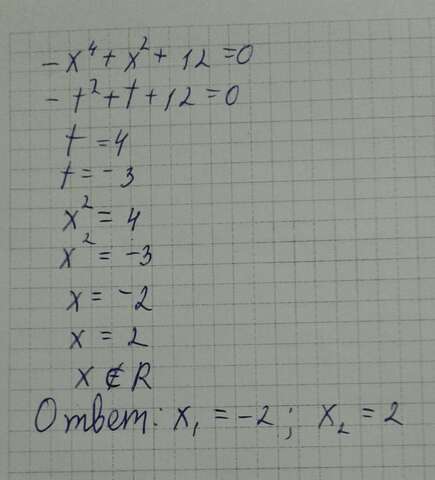 -x⁴ + x² + 12 = 0
-t² + t + 12 = 0
t = 4
t = -3
x² = 4
x² = -3
x = -2
x = 2
x ∉ R
Ответ: x₁ = -2; x₂ = 2